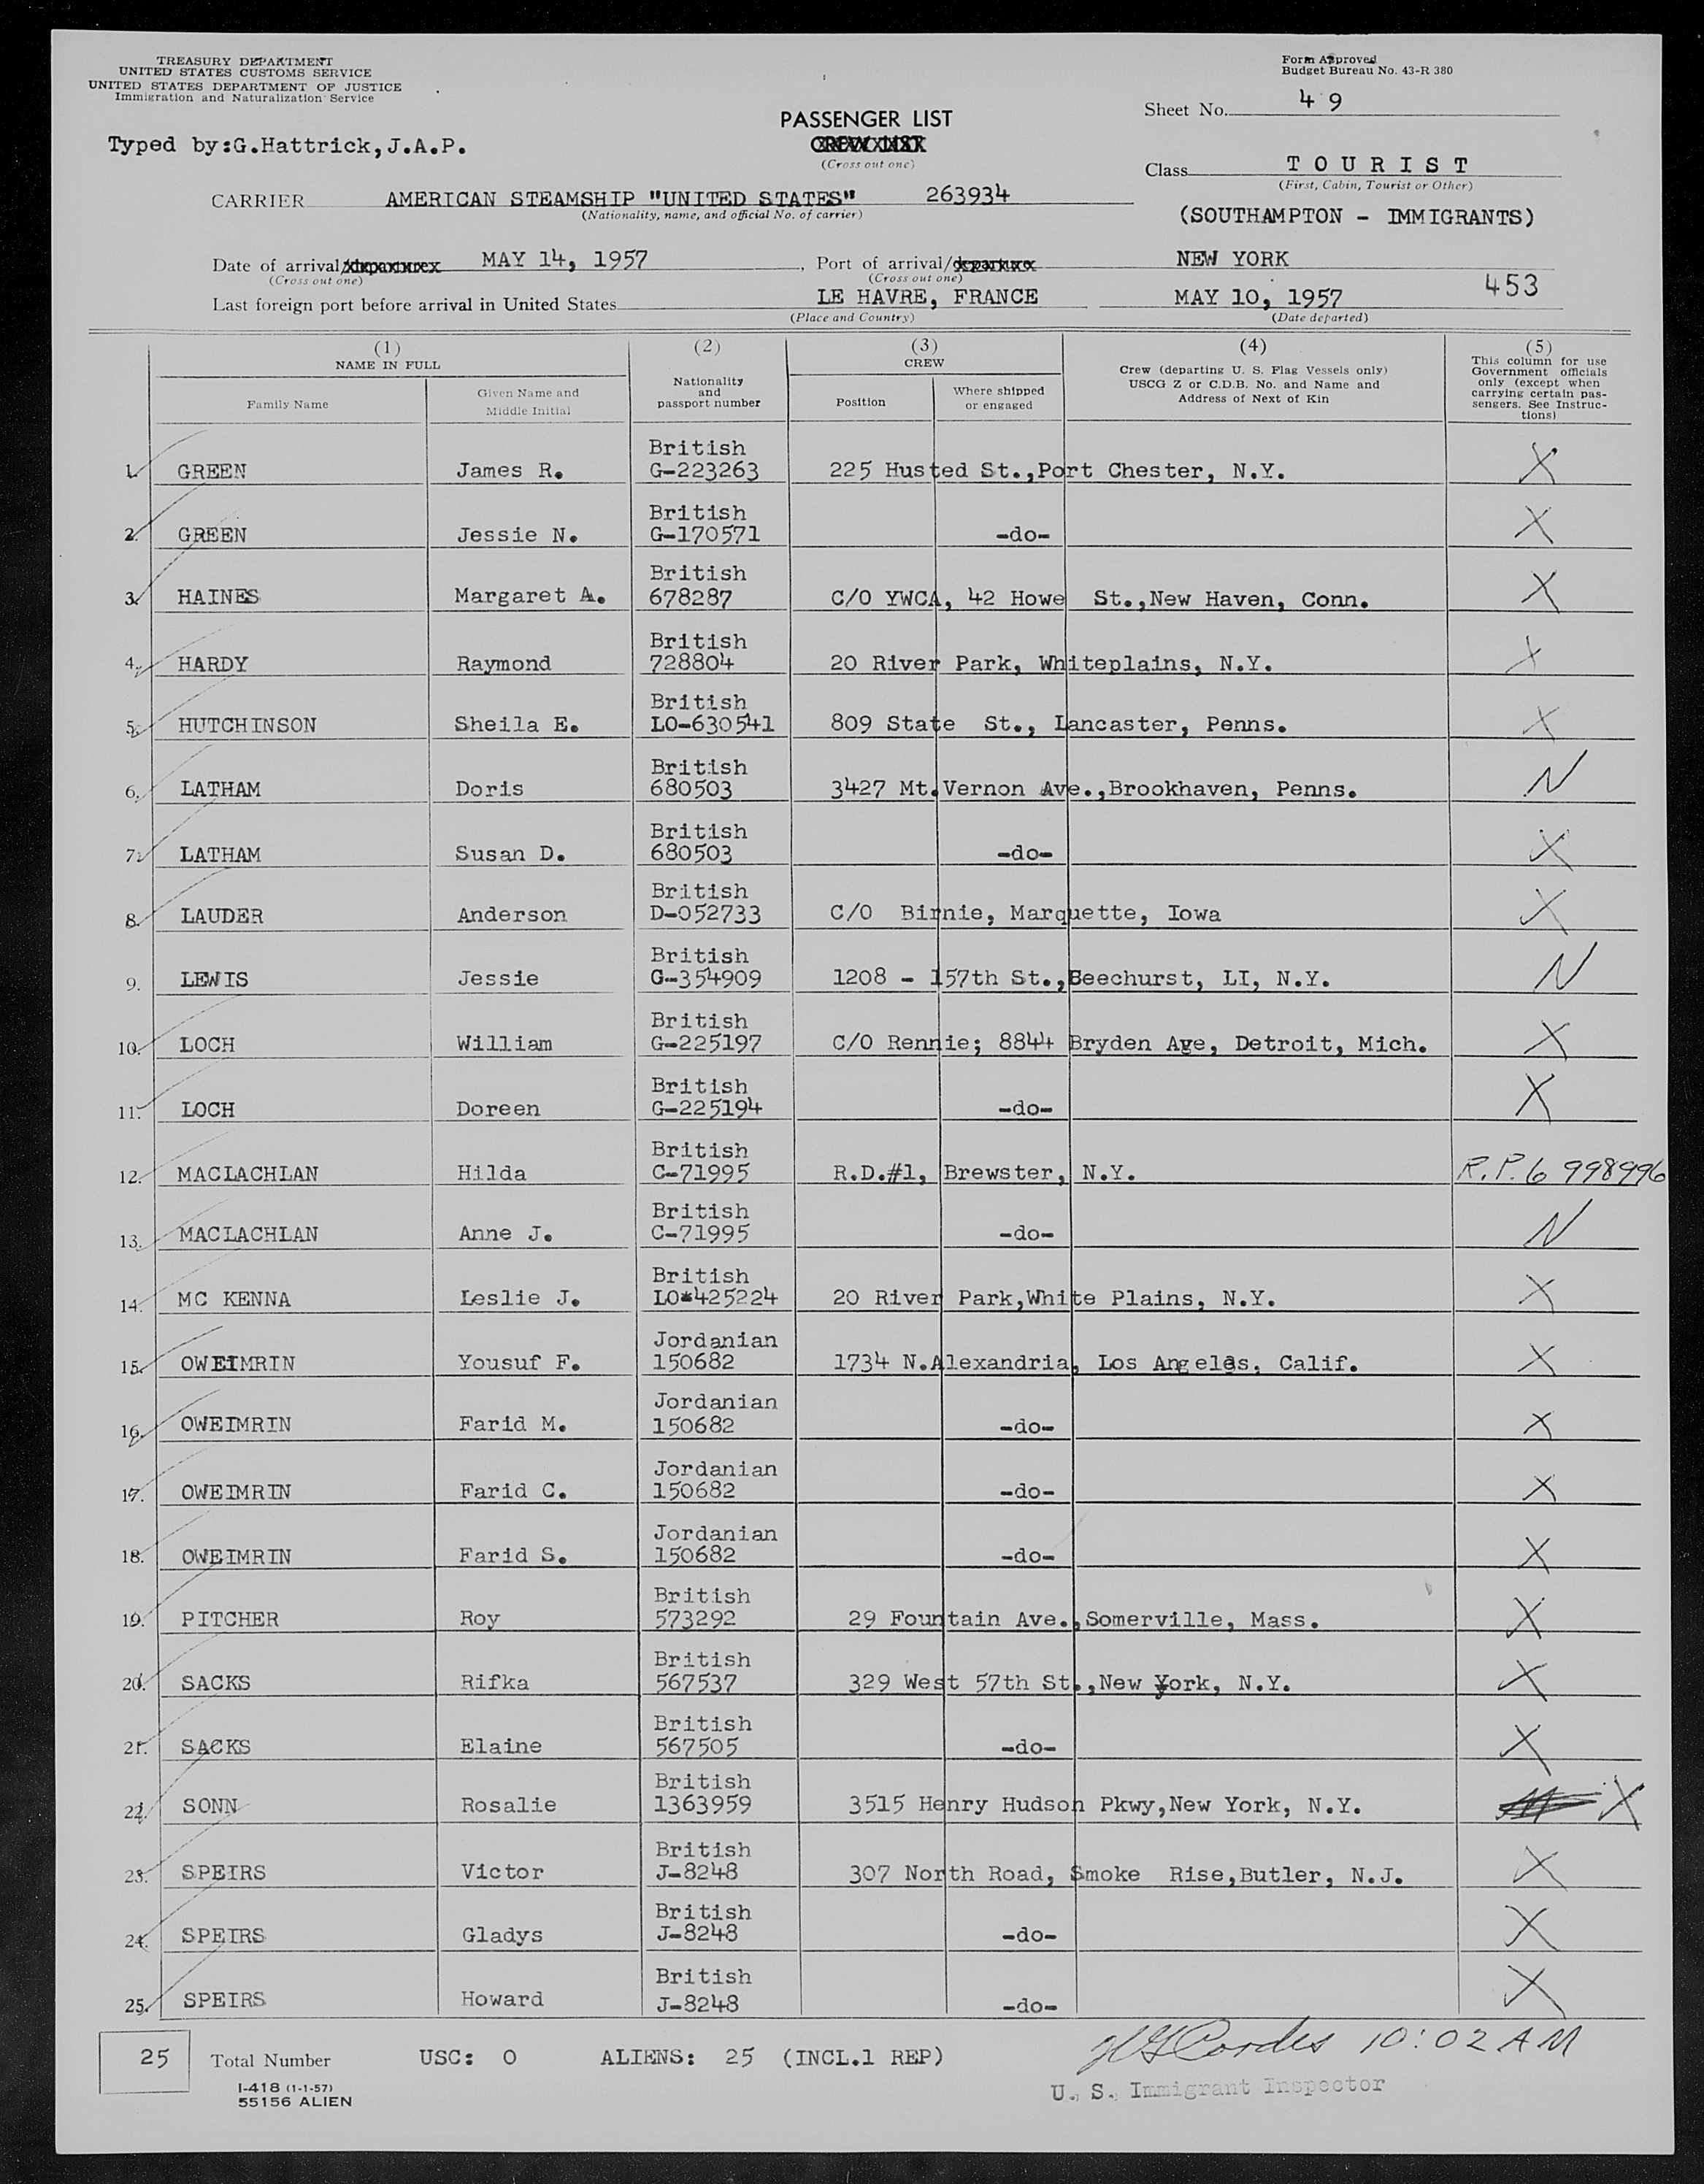 TREASURY DEPARTMENT
UNITED STATES CUSTOMS SERVICE
UNITED STATES DEPARTMENT OF JUSTICE
Immigration and Naturalization Service
Form Approved
Budget Bureau No. 43-R 380
Sheet No. 49
PASSENGER LIST
Typed by:G.Hattrick,J.A.P.
CREW LIST
(Cross out one)
Class TOURIST
(First, Cabin, Tourist or Other)
CARRIER AMERICAN STEAMSHIP "UNITED STATES" 263934
(Nationality, name, and official No. of carrier)
(SOUTHAMPTON - IMMIGRANTS)
Date of arrival/departure MAY 14, 1957, Port of arrival/departure NEW YORK
(Cross out one) (Cross out one)
453
Last foreign port before arrival in United States LE HAVRE, FRANCE MAY 10, 1957
(Place and Country) (Date departed)
(1) NAME IN FULL
Family Name
Given Name and Middle Initial
(2)
Nationality and passport number
(3) CREW
Position
Where shipped or engaged
(4)
Crew (departing U. S. Flag Vessels only)
USCG Z or C.D.B. No. and Name and
Address of Next of Kin
(5)
This column for use
Government officials
only (except when
carrying certain pas-
sengers. See Instruc-
tions)
1. GREEN James R. British G-223263 225 Husted St.,Port Chester, N.Y. X
2. GREEN Jessie N. British G-170571 -do- X
3. HAINES Margaret A. British 678287 C/O YWCA, 42 Howe St.,New Haven, Conn. X
4. HARDY Raymond British 728804 20 River Park, Whiteplains, N.Y. X
5. HUTCHINSON Sheila E. British LO-630541 809 State St., Lancaster, Penns. X
6. LATHAM Doris British 680503 3427 Mt.Vernon Ave.,Brookhaven, Penns. N
7. LATHAM Susan D. British 680503 -do- X
8. LAUDER Anderson British D-052733 C/O Birnie, Marquette, Iowa X
9. LEWIS Jessie British G-354909 1208 - 157th St.,Beechurst, LI, N.Y. N
10. LOCH William British G-225197 C/O Rennie; 8844 Bryden Age, Detroit, Mich. X
11. LOCH Doreen British G-225194 -do- X
12. MACLACHLAN Hilda British C-71995 R.D.#1, Brewster, N.Y. R.P. 6 998996
13. MACLACHLAN Anne J. British C-71995 -do- N
14. MC KENNA Leslie J. British LO*425224 20 River Park,White Plains, N.Y. X
15. OWEIMRIN Yousuf F. Jordanian 150682 1734 N.Alexandria, Los Angeles, Calif. X
16. OWEIMRIN Farid M. Jordanian 150682 -do- X
17. OWEIMRIN Farid C. Jordanian 150682 -do- X
18. OWEIMRIN Farid S. Jordanian 150682 -do- X
19. PITCHER Roy British 573292 29 Fountain Ave.,Somerville, Mass. X
20. SACKS Rifka British 567537 329 West 57th St.,New York, N.Y. X
21. SACKS Elaine British 567505 -do- X
22. SONN Rosalie British 1363959 3515 Henry Hudson Pkwy,New York, N.Y. X
23. SPEIRS Victor British J-8248 307 North Road, Smoke Rise,Butler, N.J. X
24. SPEIRS Gladys British J-8248 -do- X
25. SPEIRS Howard British J-8248 -do- X
25 Total Number USC: 0 ALIENS: 25 (INCL.1 REP) Cordes 10:02 AM
I-418 (1-1-57)
55156 ALIEN
U. S. Immigrant Inspector